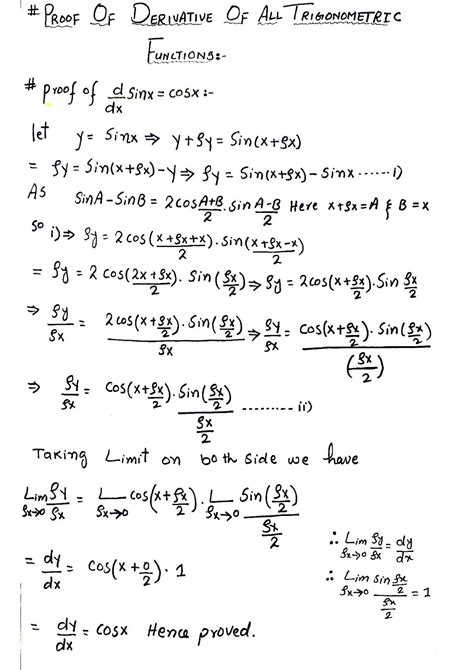 # PROOF OF DERIVATIVE OF ALL TRIGONOMETRIC
FUNCTIONS:-
# proof of d/dx Sinx = cosx :-
let y = Sinx ⇒ y+δy = Sin(x+δx)
= δy = Sin(x+δx)-y ⇒ δy = Sin(x+δx)-Sinx ......i)
As SinA-SinB = 2cos A+B/2 . sin A-B/2 Here x+δx=A & B=x
so i)⇒ δy = 2cos(x+δx+x/2).sin(x+δx-x/2)
= δy = 2 cos(2x+δx/2). Sin(δx/2) ⇒ δy = 2cos(x+δx/2).Sin δx/2
⇒ δy/δx = 2cos(x+δx/2).Sin(δx/2)/δx ⇒ δy/δx = cos(x+δx/2).Sin(δx/2)/(δx/2)
⇒ δy/δx = cos(x+δx/2).Sin(δx/2)/δx/2 .......... ii)
Taking Limit on both side we have
Lim δx→0 δy/δx = L δx→0 cos(x+δx/2). L δx→0 Sin(δx/2)/δx/2
∴ Lim δx→0 δy/δx = dy/dx
= dy/dx = cos(x+0/2)·1
∴ Lim δx→0 sin δx/2/δx/2 = 1
= dy/dx = cosx Hence proved.